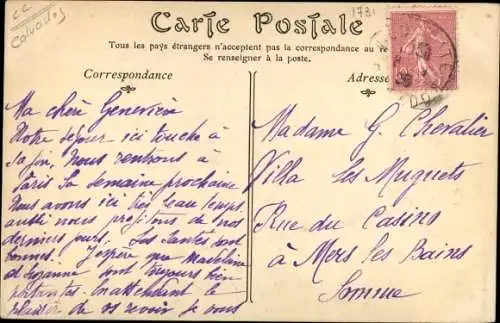 CC
Calvados
Carte Postale
1731
Tous les pays étrangers n'acceptent pas la correspondance au re
Se renseigner à la poste.
Correspondance
Adresse
Ma chère Geneviève
Notre séjour ici touche à
sa fin, nous rentrons à
Paris la semaine prochaine
Nous avons ici très beau temps
aussi nous profitons de nos
derniers jours. Les santés sont
bonnes. J'espère que Madeleine
et Suzanne sont toujours bien
portantes. En attendant le
plaisir de vs revoir je vous
Madame G. Chevalier
Villa les Muguets
Rue du Casino
à Mers les Bains
Somme